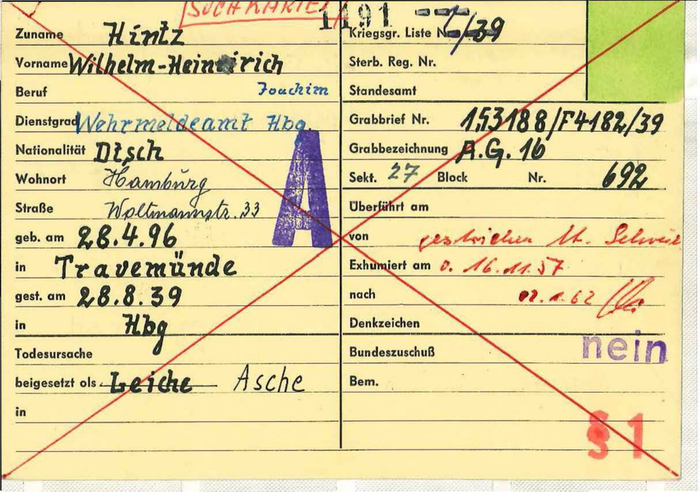 SUCHKARTE!
1491
Zuname Hintz
Vorname Wilhelm-Heinrich
Beruf Joachim
Dienstgrad Wehrmeldeamt Hbg.
Nationalität Dtsch
Wohnort Hamburg
Straße Woltmannstr. 33
geb. am 28.4.96
in Travemünde
gest. am 28.8.39
in Hbg
Todesursache
beigesetzt als Leiche Asche
in
A
Kriegsgr. Liste 1/39
Sterb. Reg. Nr.
Standesamt
Grabbrief Nr. 153188/F4182/39
Grabbezeichnung A.G. 16
Sekt. 27 Block Nr. 692
Überführt am
von gestrichen lt.
Exhumiert am 16.11.57
nach 1.62
Denkzeichen
Bundeszuschuß nein
Bem.
§ 1